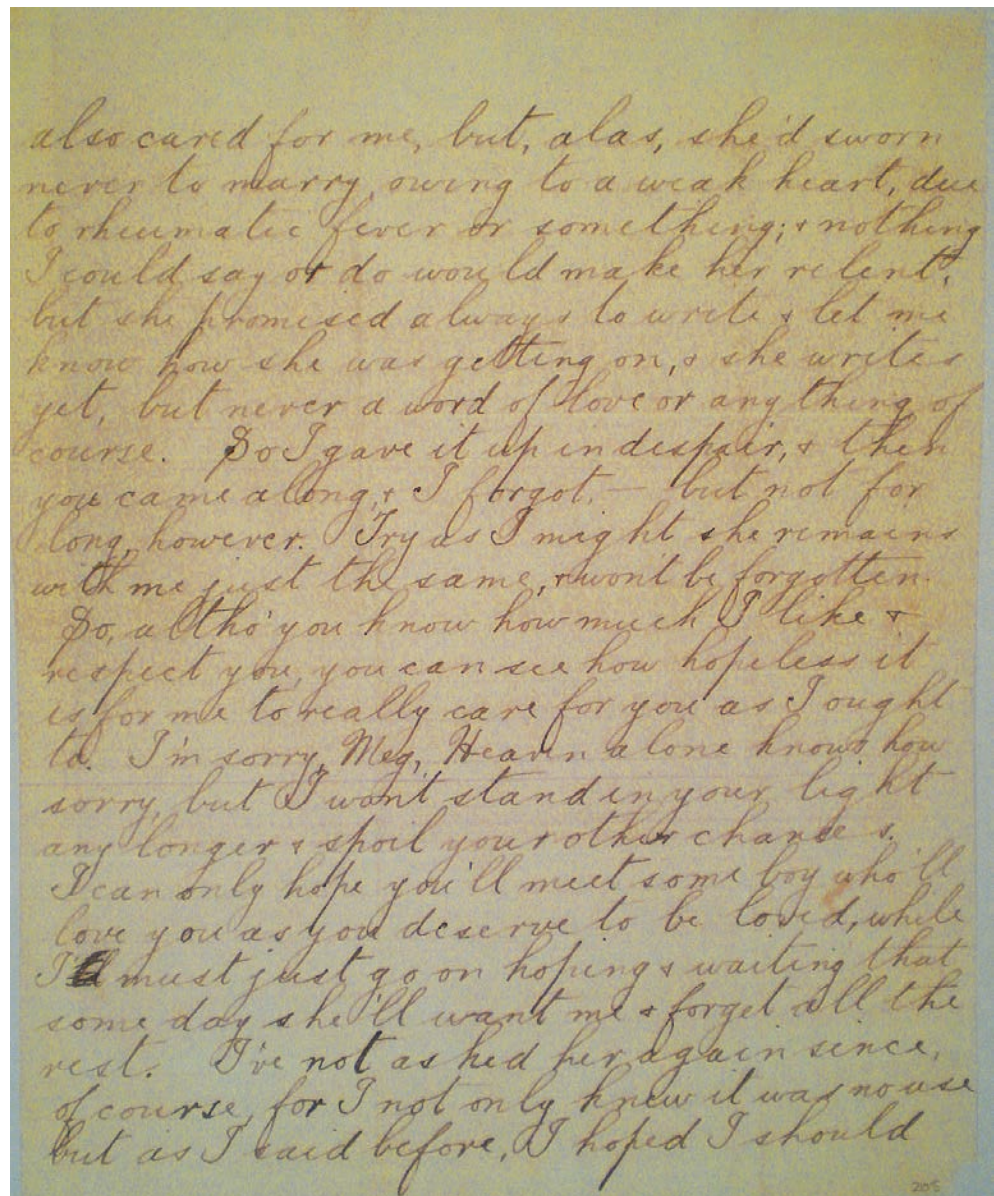 also cared for me, but, alas, she'd sworn
never to marry, owing to a weak heart, due
to rheumatic fever or something; & nothing
I could say or do would make her relent,
but she promised always to write & let me
know how she was getting on, & she writes
yet, but never a word of love or anything of
course. So I gave it up in despair, & then
you came along, & I forgot. — but not for
long, however. Try as I might she remains
with me just the same, & won't be forgotten.
So, altho' you know how much I like &
respect you, you can see how hopeless it
is for me to really care for you as I ought
to. I'm sorry, Meg, Heaven alone knows how
sorry, but I won't stand in your light
any longer & spoil your other chances.
I can only hope you'll meet some boy who'll
love you as you deserve to be loved, while
I must just go on hoping & waiting that
some day she'll want me & forget all the
rest. I've not asked her again since,
of course, for I not only knew it was no use
but as I said before, I hoped I should
205